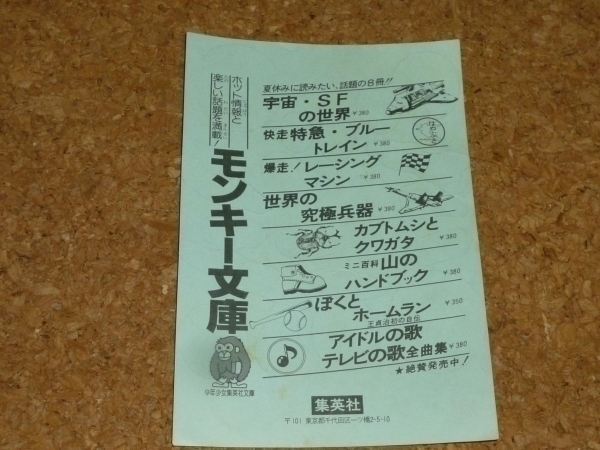 ホット情報と
楽しい話題を満載!
モンキー文庫
少年少女集英社文庫
夏休みに読みたい、話題の8冊!!
宇宙・SF
の世界 ¥380
快走 特急・ブルー
トレイン ¥380
はやぶさ
爆走!レーシング
マシン ¥380
世界の
究極兵器 ¥380
カブトムシと
クワガタ ¥380
ミニ百科 山の
ハンドブック ¥380
ぼくと
ホームラン ¥350
王貞治初の自伝
アイドルの歌
テレビの歌全曲集 ¥380
★絶賛発売中!
集英社
〒101 東京都千代田区一ツ橋2-5-10